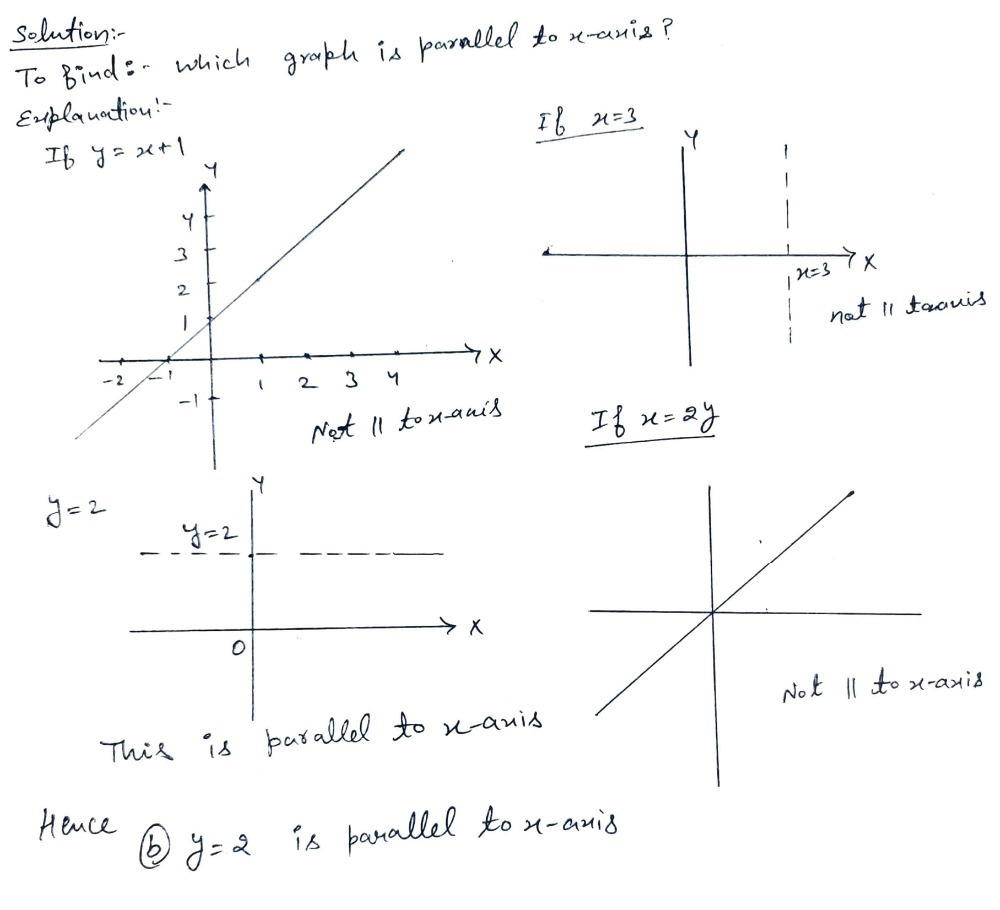 Solution:-
To find:- which graph is parallel to x-axis?
Explanation:-
If y = x+1
Y
4
3
2
1
-2 -1 1 2 3 4 X
-1
Not || to x-axis
If x=3
Y
X
x=3
not || to x-axis
y=2
Y
y=2
X
O
This is parallel to x-axis
If x=2y
Not || to x-axis
Hence (b) y=2 is parallel to x-axis